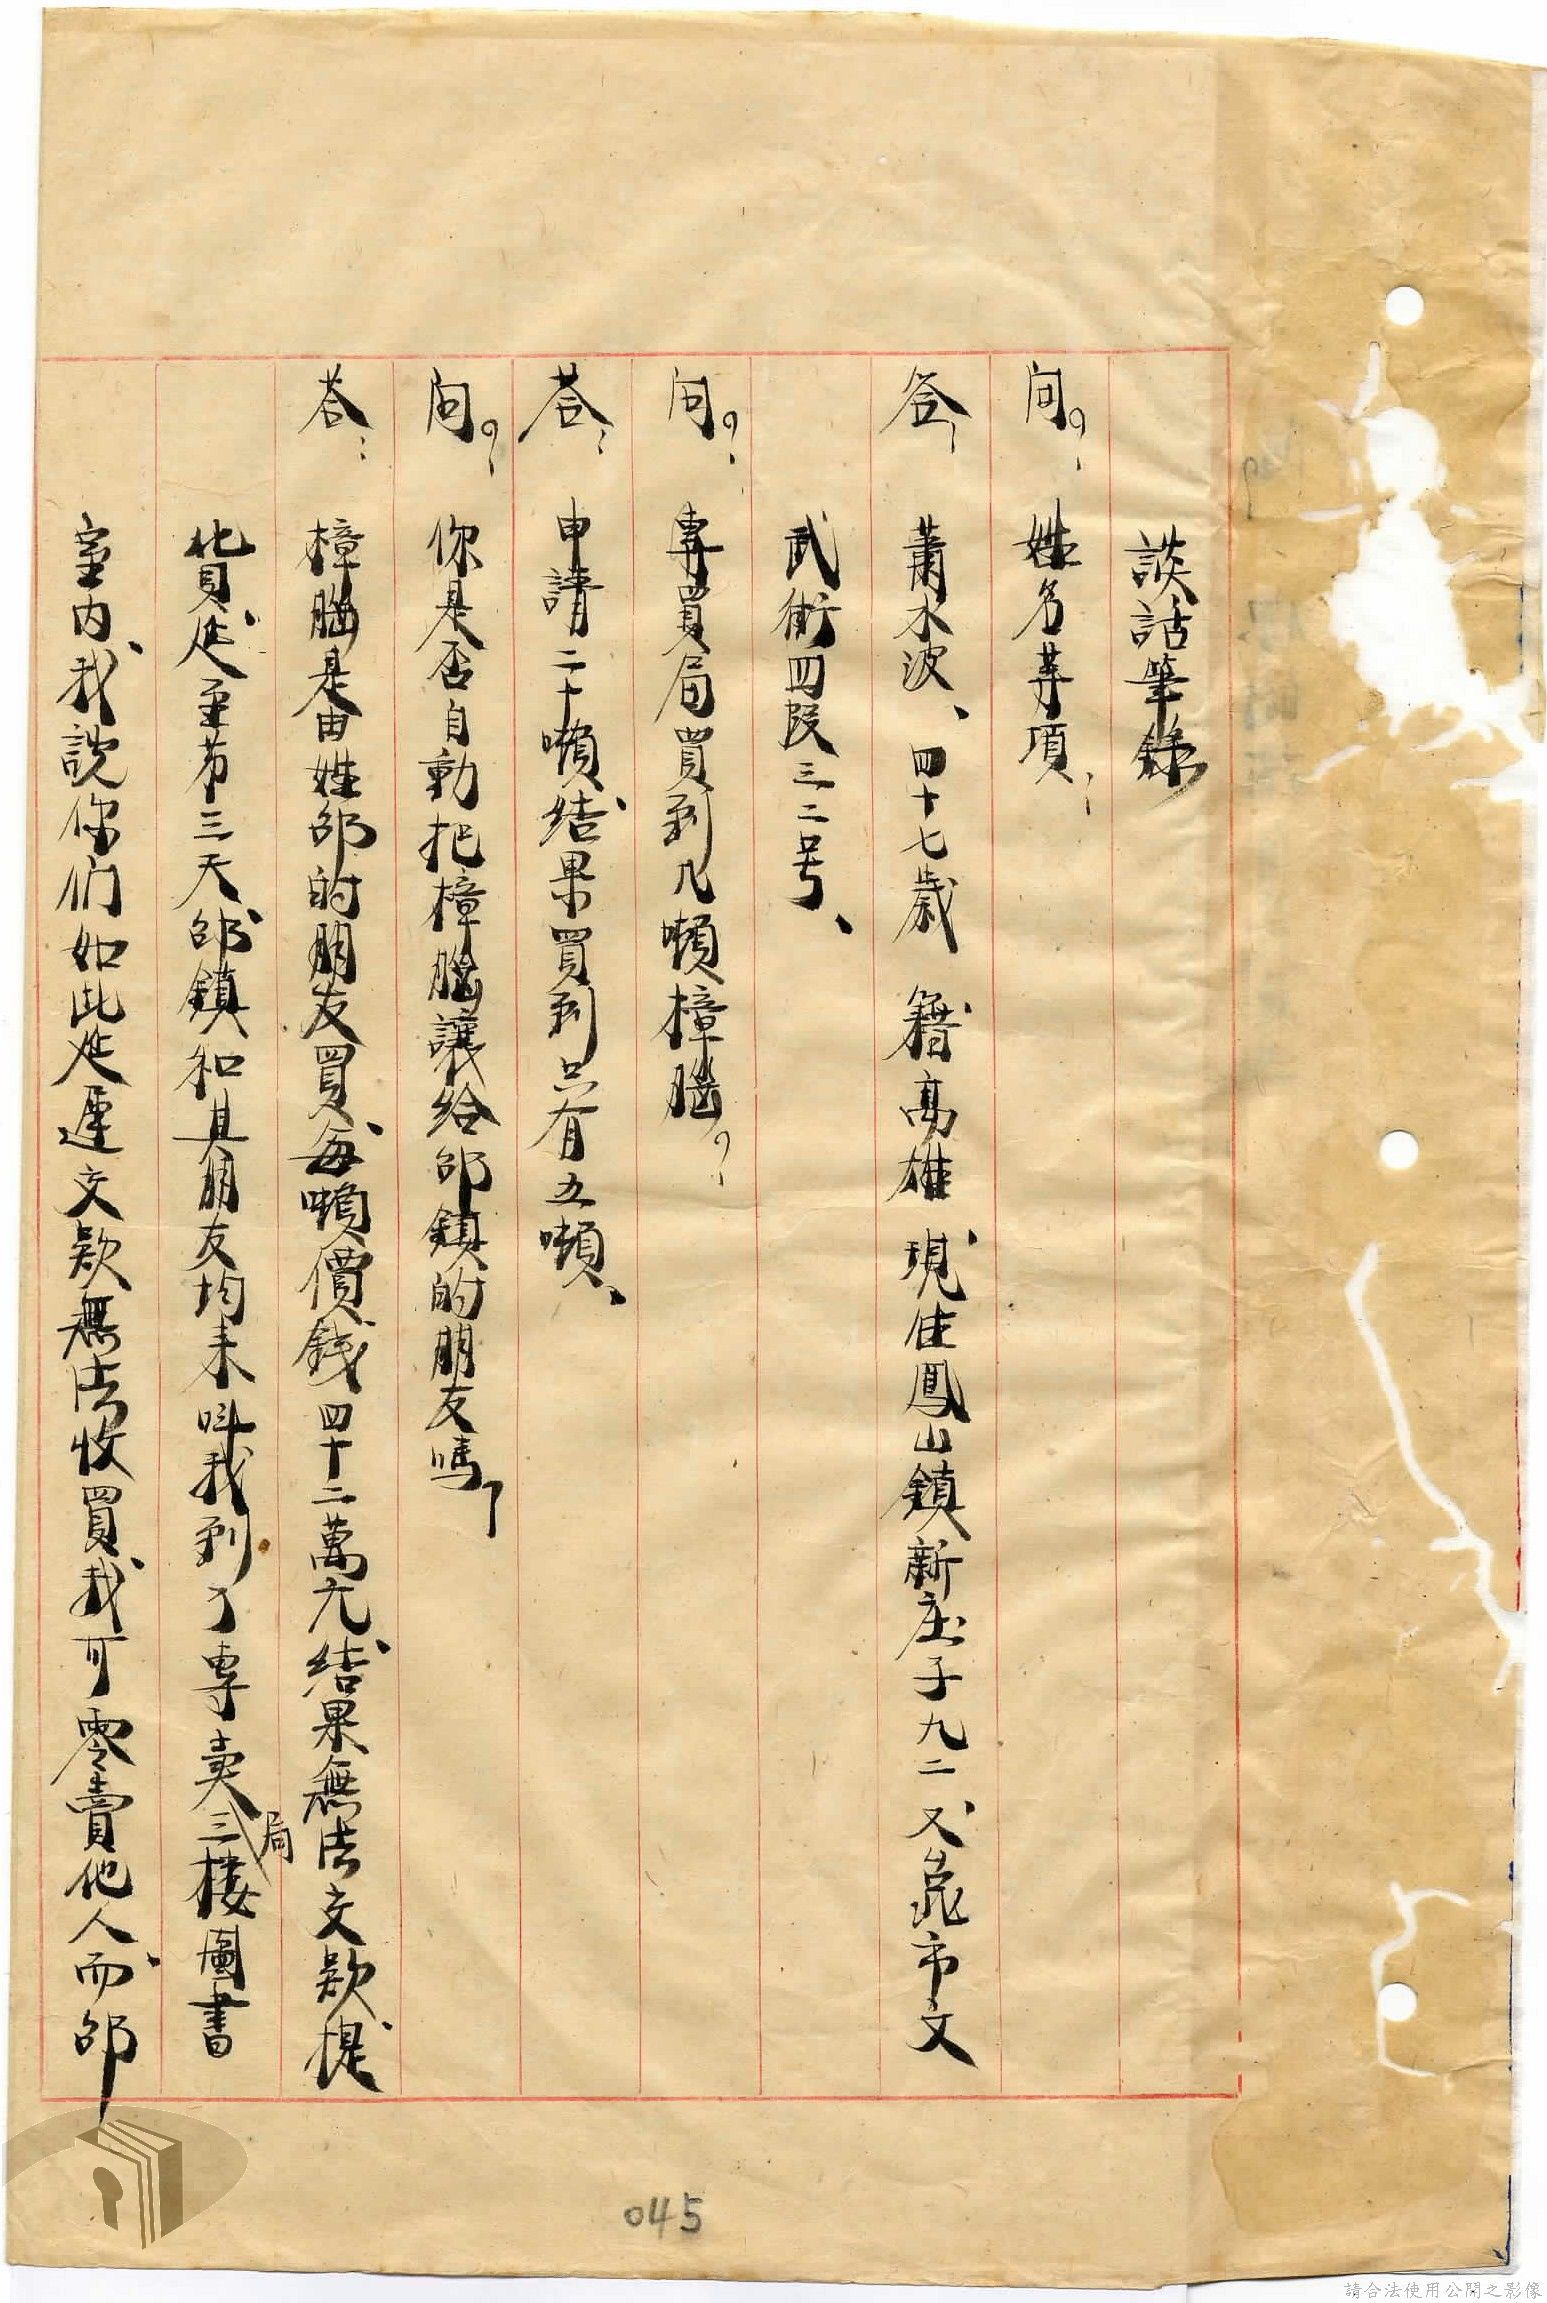 談話筆錄
問。、姓名等項、
答、蕭水波、四十七歲 籍高雄、現住鳳山鎮新庄子九二、又嵩市文
武街四段三二号、
問。、專買局買到几噸樟腦。、
答、申請二十噸、結果買到只有五噸、
問。、你是否自動把樟腦讓給邵鎮的朋友嗎
答、樟腦是由姓邵的朋友買、每噸價錢四十二萬元、結果無法交款提
貨、延至第三天、邵鎮和其朋友均来叫我到了專卖局三楼圖書
室内、我説你们如此延遲交款無法收買、我可零賣他人、而邵
045
請合法使用公開之影像